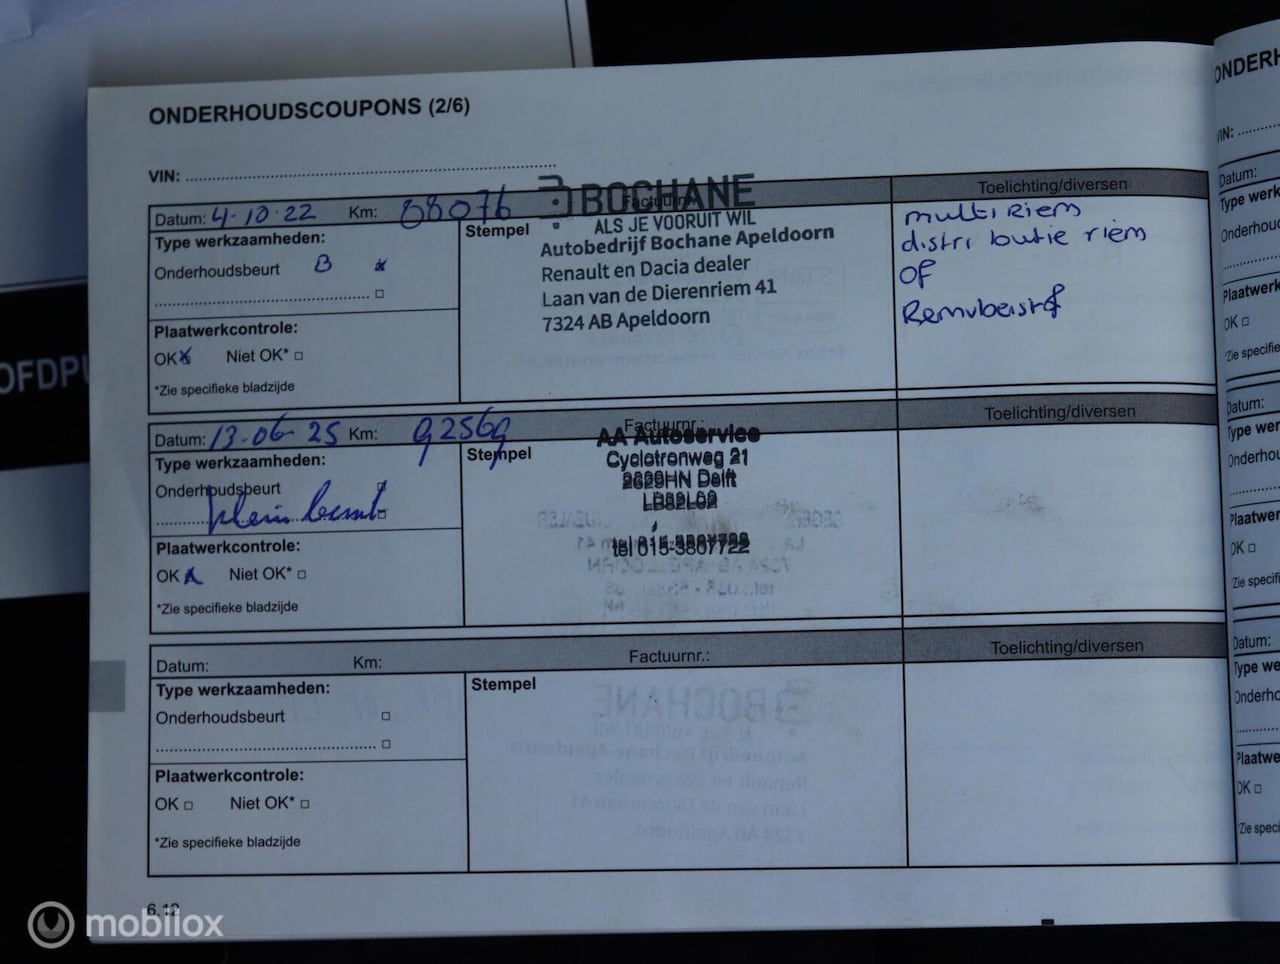 ONDERHOUDSCOUPONS (2/6)
VIN:
Datum: 4-10-22 Km: 88076 Factuurnr.: Toelichting/diversen
BOCHANE
ALS JE VOORUIT WIL
Autobedrijf Bochane Apeldoorn
Renault en Dacia dealer
Laan van de Dierenriem 41
7324 AB Apeldoorn
Type werkzaamheden:
Stempel
Onderhoudsbeurt B x
Plaatwerkcontrole:
OK x Niet OK*
*Zie specifieke bladzijde
multi Riem
distributie riem
Of
Remvloeistof
Datum: 13-06-25 Km: 92569 Factuurnr.: Toelichting/diversen
Type werkzaamheden:
Stempel
AA Autoservice
Cyclotronweg 21
2629HN Delft
tel 015-3807722
Onderhoudsbeurt
klein beurt
Plaatwerkcontrole:
OK x Niet OK*
*Zie specifieke bladzijde
Datum: Km: Factuurnr.: Toelichting/diversen
Type werkzaamheden:
Stempel
Onderhoudsbeurt
Plaatwerkcontrole:
OK Niet OK*
*Zie specifieke bladzijde
6.12
mobilox
OFDPU
ONDERH
VIN:
Datum:
Type werk
Onderhoud
Plaatwerk
OK
*Zie specifie
Datum:
Type wer
Onderhou
Plaatwer
OK
Zie speci
Datum:
Type we
Onderho
Plaatwe
OK
*Zie spec